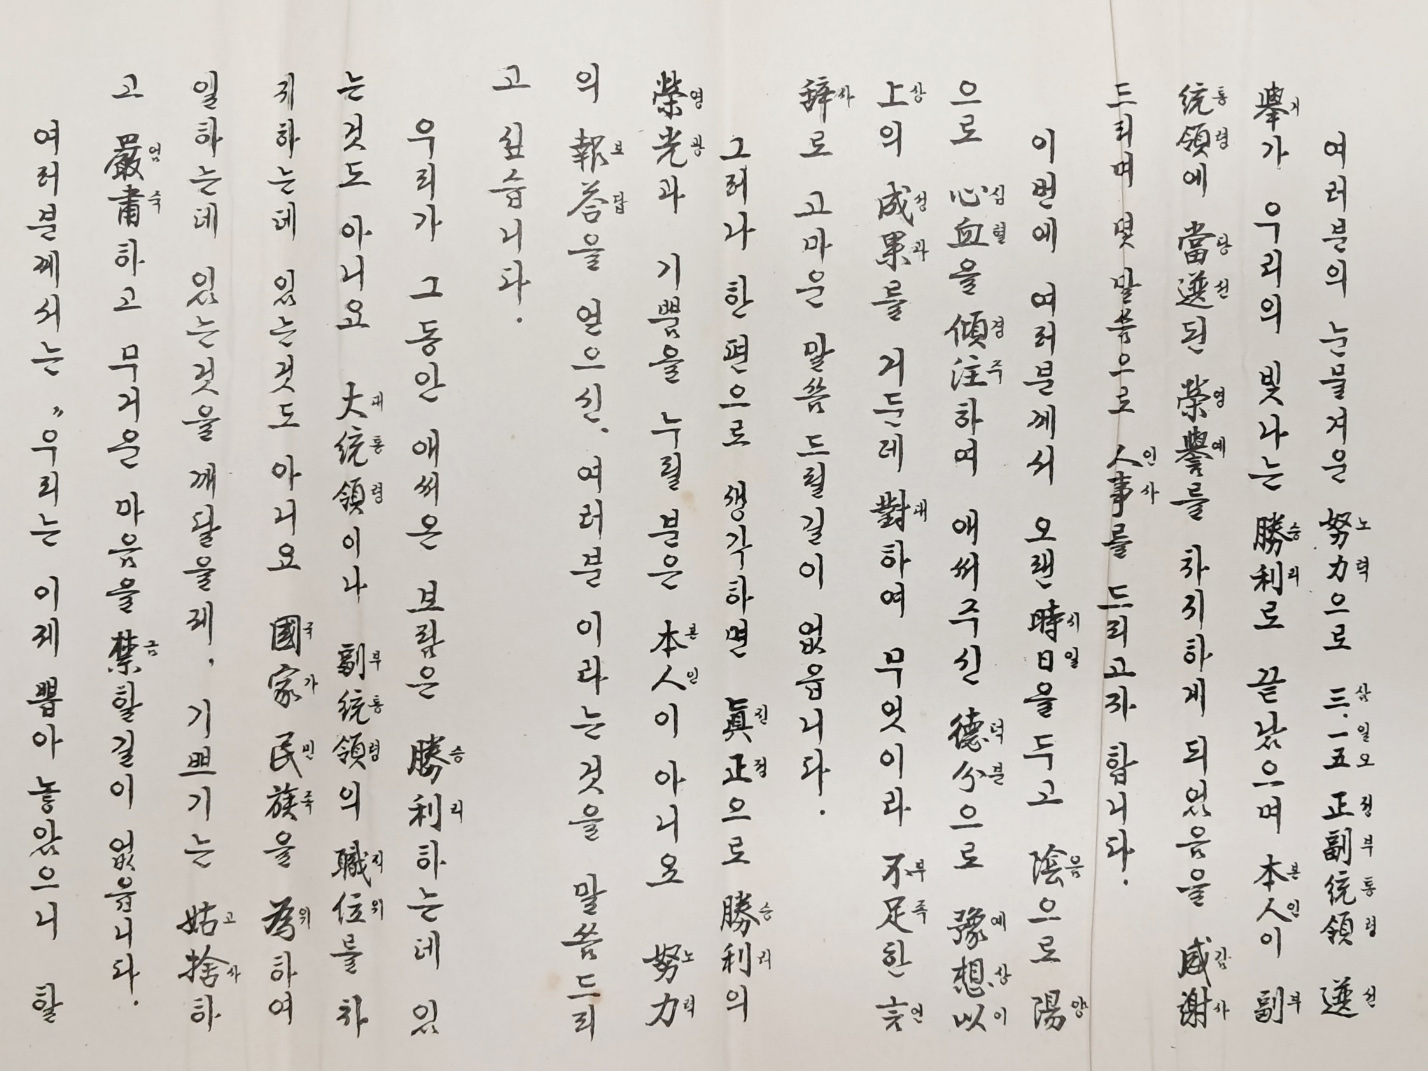 여러분의 눈물겨운 努力으로 三.一五 正副統領 選
노력 삼일오 정부통령 선
擧가 우리의 빛나는 勝利로 끝났으며 本人이 副
거 승리 본인 부
統領에 當選된 榮譽를 차지하게 되었음을 感謝
통령 당선 영예 감사
드리며 몇 말씀으로 人事를 드리고자 합니다.
인사
이번에 여러분께서 오랜 時日을 두고 陰으로 陽
시일 음 양
으로 心血을 傾注하여 애써주신 德分으로 豫想以
심혈 경주 덕분 예상이
上의 成果를 거둔데 對하여 무엇이라 不足한 言
상 성과 대 부족 언
辭로 고마운 말씀 드릴길이 없읍니다.
사
그러나 한편으로 생각하면 眞正으로 勝利의
진정 승리
榮光과 기쁨을 누릴 분은 本人이 아니요 努力
영광 본인 노력
의 報答을 얻으신, 여러분 이라는것을 말씀드리
보답
고 싶습니다.
우리가 그동안 애써온 보람은 勝利하는데 있
승리
는것도 아니요 大統領이나 副統領의 職位를 차
대통령 부통령 직위
지하는데 있는것도 아니요 國家 民族을 爲하여
국가 민족 위
일하는데 있는것을 깨달을제, 기쁘기는 姑捨하
고사
고 嚴肅하고 무거운 마음을 禁할길이 없읍니다.
엄숙 금
여러분께서는 "우리는 이제 뽑아 놓았으니 할